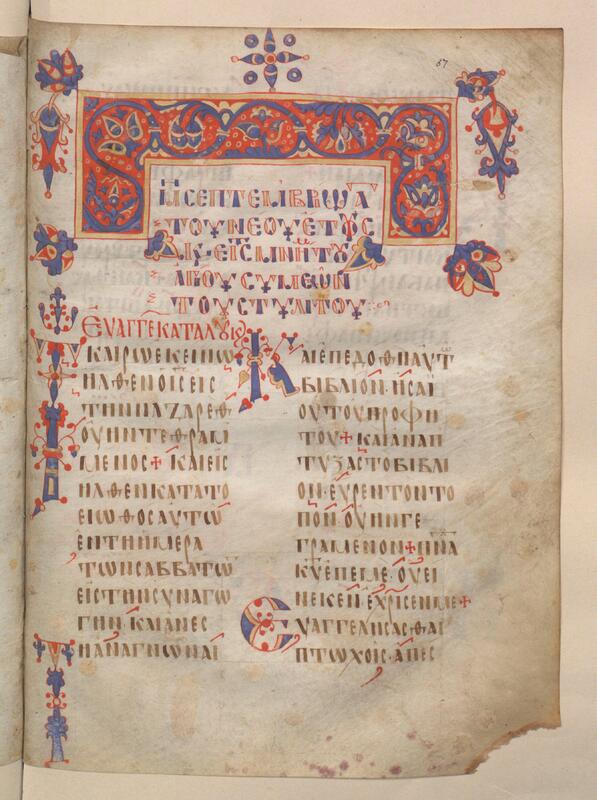 67
CΕΠΤΕΜΒΡΙΩ Α
ΤΟΥ ΝΕΟΥ ΕΤΟΥC
ΑΓΙΟΥ CΥΜΕΩΝ
ΤΟΥ CΤΥΛΙΤΟΥ
ΕΥΑΓΓΕ ΚΑΤΑ ΛΟΥΚ
Τ ΚΑΙΡΩ ΕΚΕΙΝΩ
ΗΛΘΕΝ Ο ΙC ΕΙC
ΤΗΝ ΝΑΖΑΡΕΘ
ΟΥ ΗΝ ΤΕΘΡΑΜ
ΜΕΝΟC + ΚΑΙ ΕΙC
ΗΛΘΕΝ ΚΑΤΑ ΤΟ
ΕΙΩΘΟC ΑΥΤΩ
ΕΝ ΤΗ ΗΜΕΡΑ
ΤΩΝ CΑΒΒΑΤΩ
ΕΙC ΤΗΝ CΥΝΑΓΩ
ΓΗΝ· ΚΑΙ ΑΝΕC
ΤΗ ΑΝΑΓΝΩΝΑΙ
ΚΑΙ ΕΠΕΔΟΘΗ ΑΥΤ
ΒΙΒΛΙΟΝ· ΗCΑΙ
ΟΥ ΤΟΥ ΠΡΟΦΗ
ΤΟΥ + ΚΑΙ ΑΝΑΠ
ΤΥΞΑC ΤΟ ΒΙΒΛΙ
ΟΝ· ΕΥΡΕΝ ΤΟΝ ΤΟ
ΠΟΝ· ΟΥ ΗΝ ΓΕ
ΓΡΑΜΕΝΟΝ + ΠΝΑ
ΚΥ ΕΠ ΕΜΕ· ΟΥ ΕΙ
ΝΕΚΕΝ· ΕΧΡΙCΕΝ ΜΕ +
ΕΥΑΓΓΕΛΙCΑCΘΑΙ
ΠΤΩΧΟΙC· ΑΠΕC